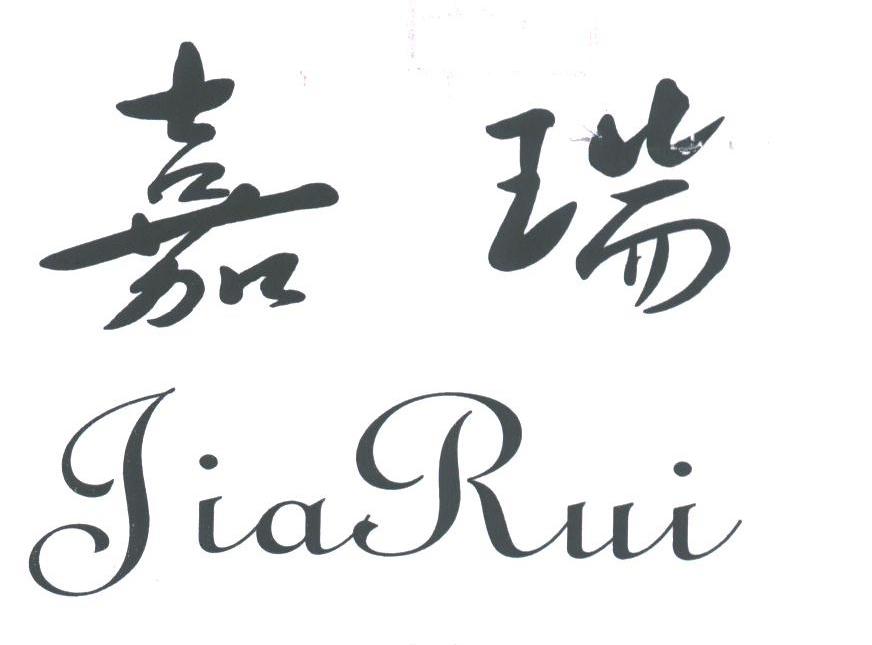 嘉瑞
JiaRui